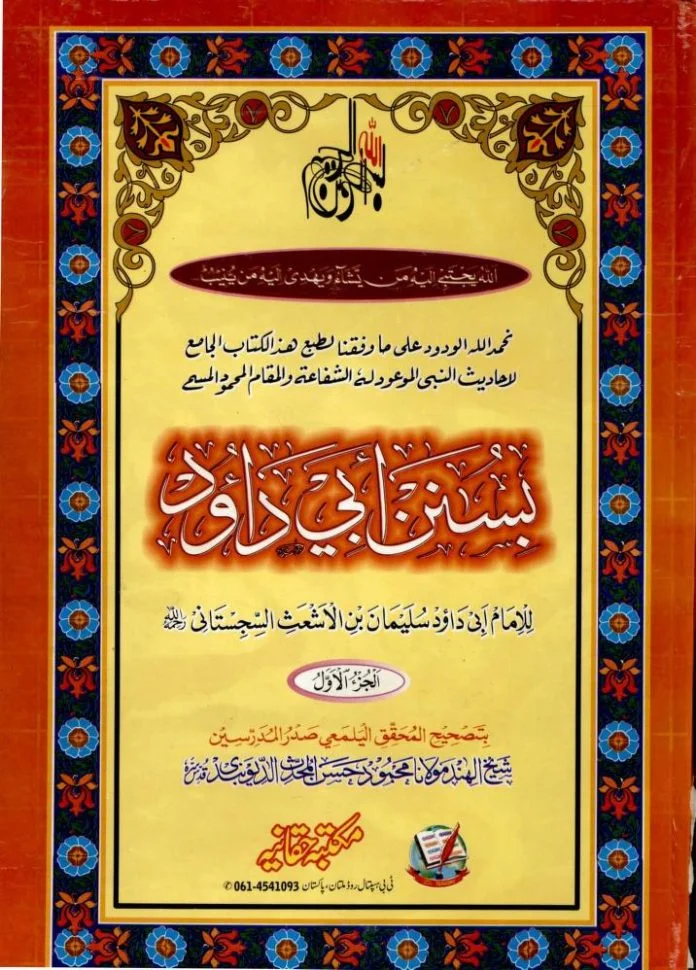 بسم الله الرحمن الرحيم
الله يجتبي اليه من يشآء ويهدى اليه من ينيب
نحمد الله الودود على ما وفقنا لطبع هذا الكتاب الجامع
لاحاديث النبى الموعود له الشفاعة والمقام المحمود المسمى
بسُنَن أبي دَاؤد
لِلإمَام اَبى دَاوٗد سُلَيمَان بنِ الاَشعَثِ السِّجِستَانى رحمه الله
اَلجُزءُ الاَوَّلُ
بتَصحِيح المُحَقِّق اليَلمَعِي صَدرُ المُدَرِّسِين
شيخ الهند مولانا محمود حسن المحدث الديوبندى قدس سره
مکتبہ حقانیہ
ٹی بی ہسپتال روڈ ملتان، پاکستان 061-4541093 ✆